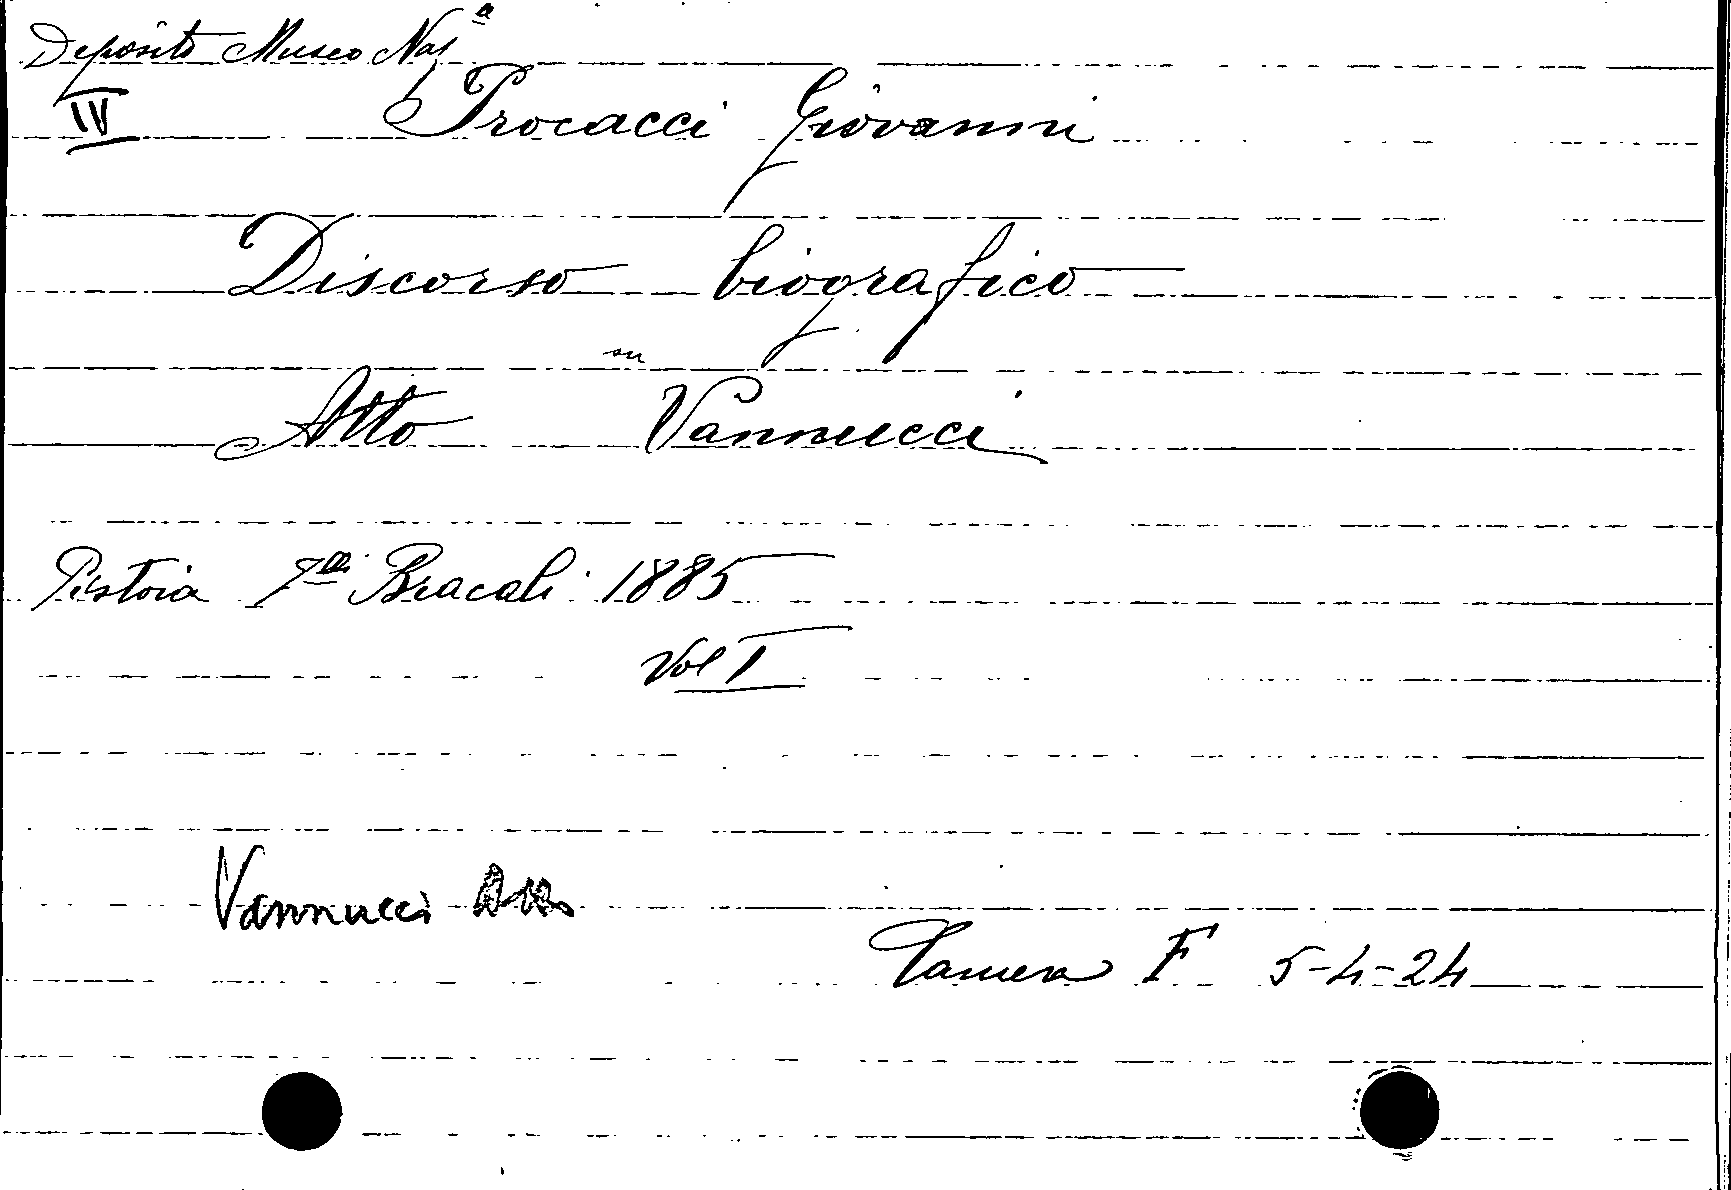 Deposito Museo Naz^a
IV Procacci Giovanni
Discorso biografico
su
Atto Vannucci
Pistoia F^lli Bracali 1885
Vol I
Vannucci Atto
Camera F 5-4-24